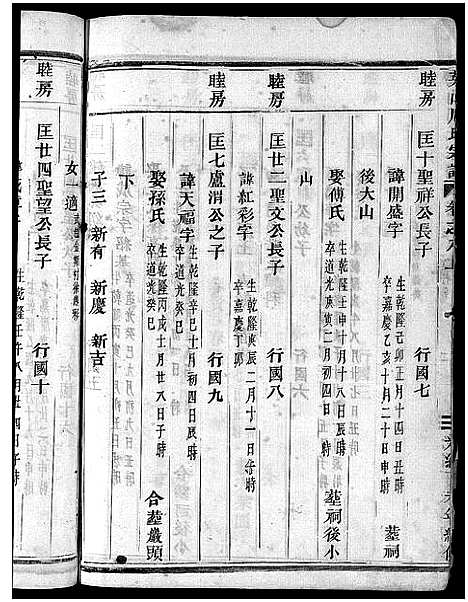 睦房
匡十聖祥公長子 行國七
諱開盛字 生乾隆己卯正月十四日丑時 卒嘉慶乙亥十月二十日申時 墓祠
後大山
娶傅氏 生乾隆壬申十月十八辰時 卒道光庚寅二月初四日時 墓祠後小
山
睦房
匡廿二聖文公長子 行國八
諱紅彩字 生乾隆庚辰二月十一日午時 卒嘉慶丁卯
睦房
匡七盧渭公之子 行國九
諱天福字 生乾隆辛巳十月初四日辰時 卒道光癸巳
娶孫氏 生乾隆丙戌十月廿八日子時 卒道光癸巳 合墓巖頭
下
子三 新有 新慶 新吉
女一適
睦房
匡廿四聖望公長子 行國十
生乾隆壬午八月十四日子時